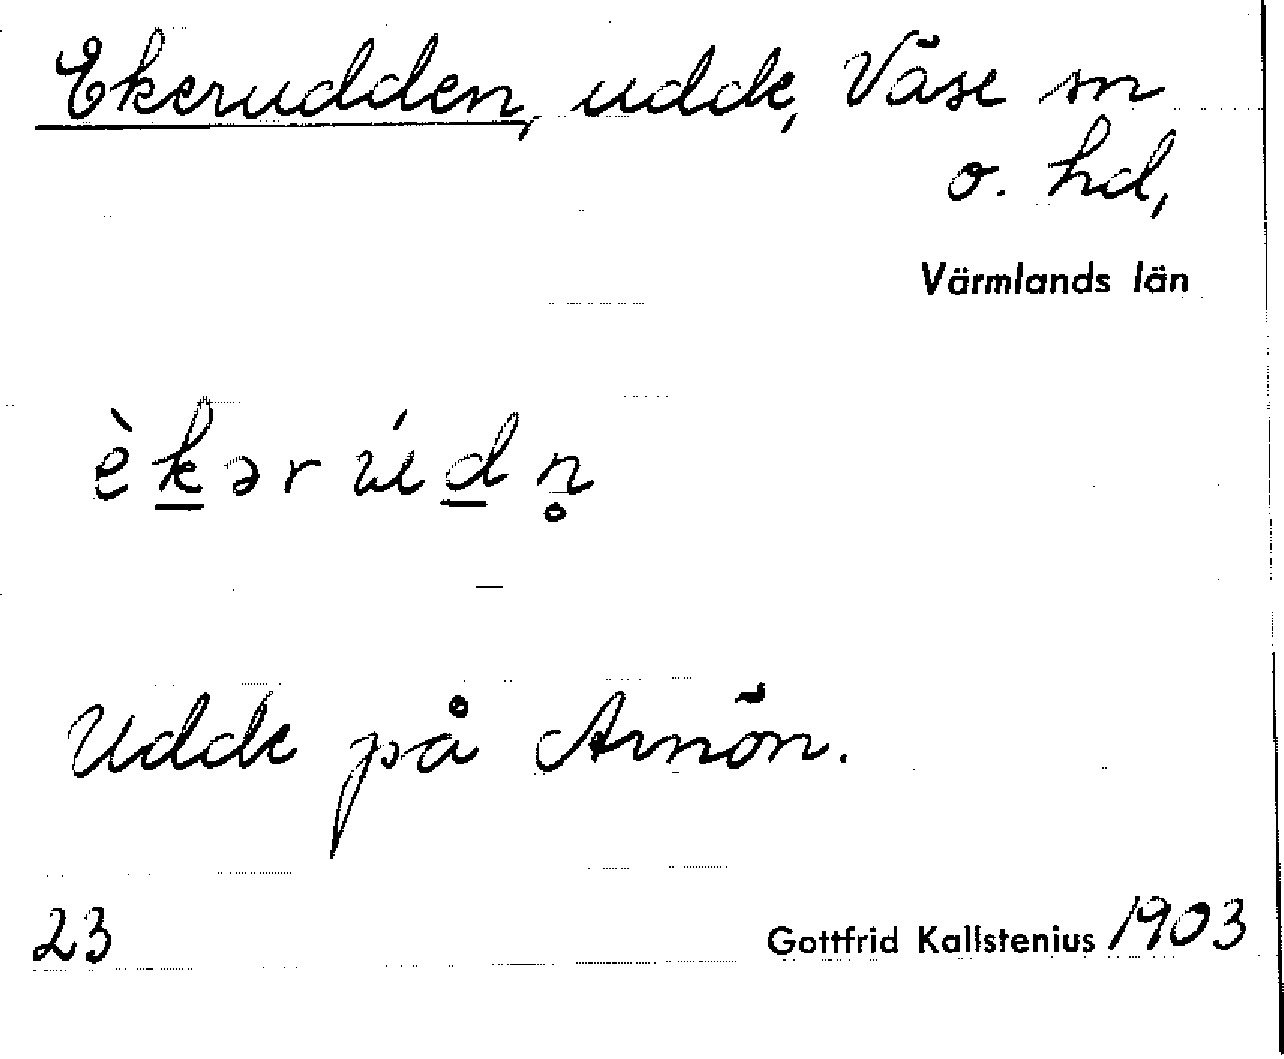 Ekerudden, udde, Väse sn
o. hd,
Värmlands län
èkərúdn̥
Udde på Arnön.
23 Gottfrid Kallstenius 1903